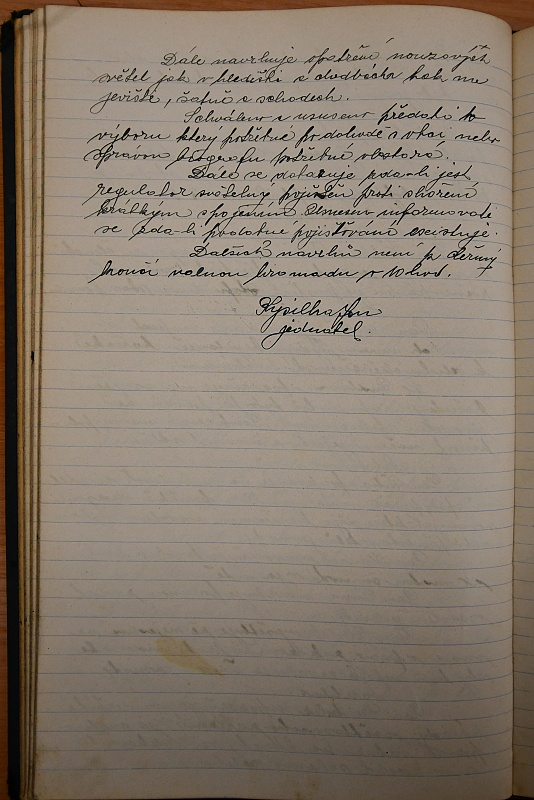 Dále navrhuje opatření nouzových
světel jak v hledišti a chodbách tak na
jevišti, šatně a schodech.
Schváleno a usneseno předati to
výboru který potřebné po dohodě s obcí nebo
správou biografu potřebné obstará.
Dále se dotazuje zda-li jest
regulator světelný pojištěn proti shoření
krátkým spojením. Usneseno informovati
se zda-li podobné pojišťování existuje.
Dalších návrhů není p. 
končí valnou hromadu v 10 hod.
Jan
jednatel.